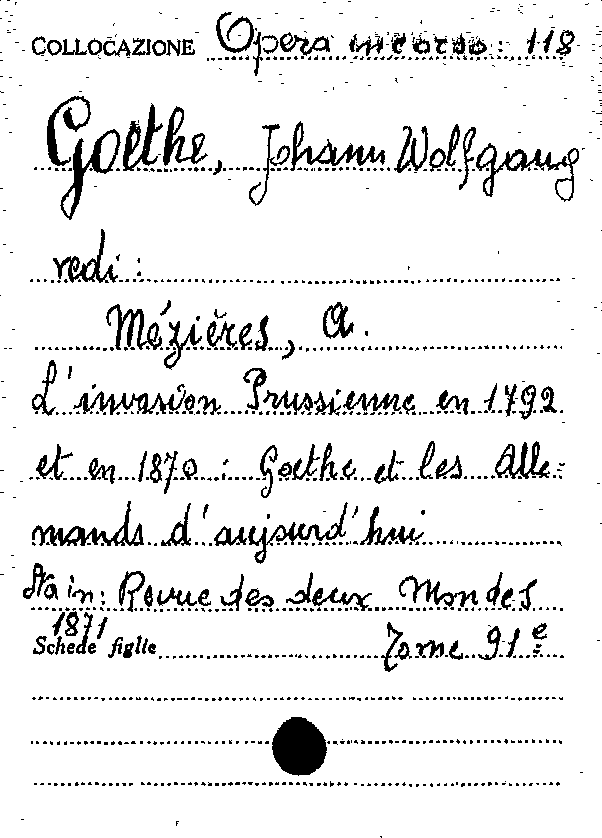 COLLOCAZIONE Opera in corso: 118
Goethe, Johann Wolfgang
vedi:
Mézières, A.
L'invasion Prussienne en 1792
et en 1870 : Goethe et les Alle=
mands d'aujourd'hui
Sta in: Revue des deux Mondes
1871
Schede figlie Tome 91e